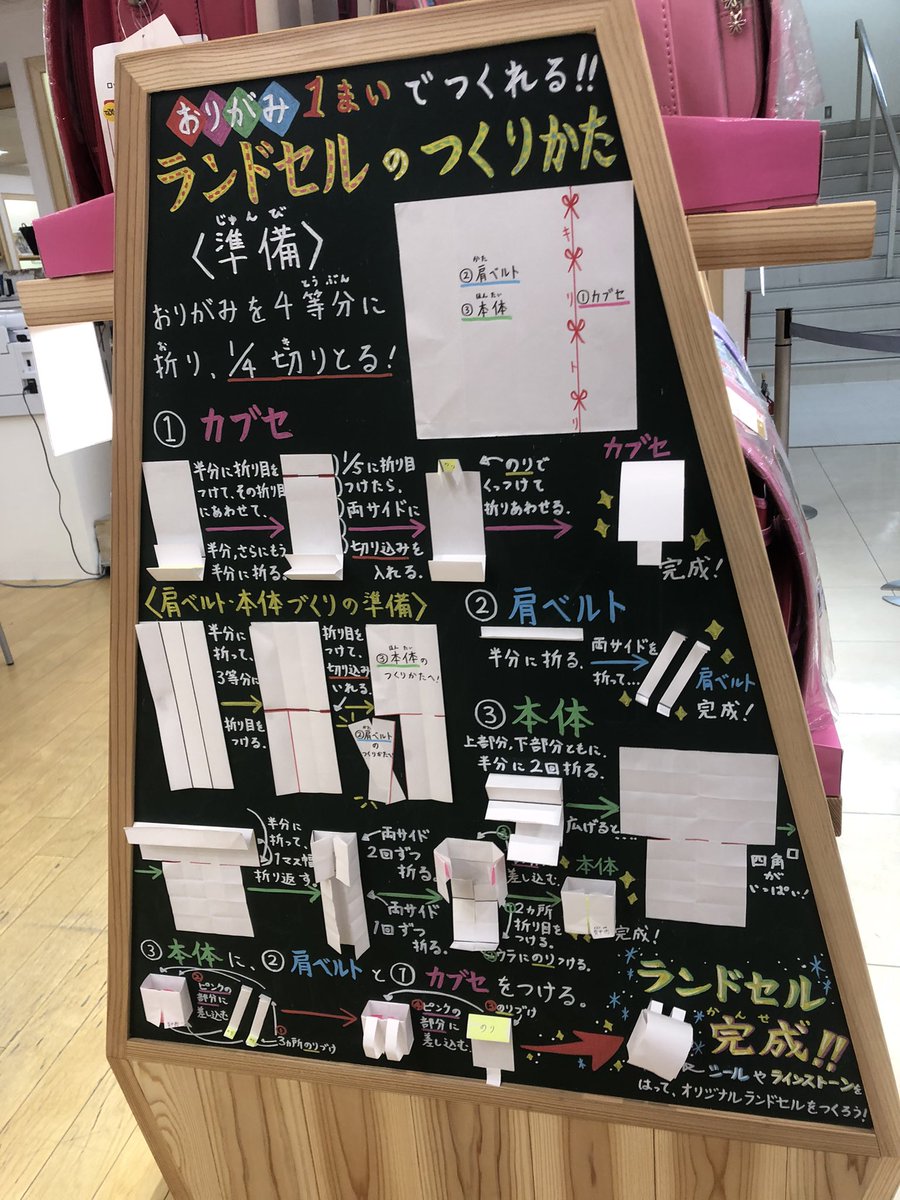 おりがみ1まいでつくれる!!
ランドセルのつくりかた
じゅんび
〈準備〉
とうぶん
おりがみを4等分に
お き
折り、1/4 切りとる!
キリトリ
かた
②肩ベルト
ほんたい
③本体
①カブセ
① カブセ
半分に折り目を
つけて、その折り目
にあわせて、
半分、さらにもう
半分に折る。
1/5に折り目
つけたら、
両サイドに
切り込みを
入れる。
のり
のりで
くっつけて
折りあわせる。
カブセ
完成!
〈肩ベルト・本体づくりの準備〉
半分に
折って、
3等分に
折り目を
つける。
折り目を
つけて、
切り込み
いれる。
ほんたい
③本体の
つくりかたへ!
かた
②肩ベルト
の
つくりかたへ
② 肩ベルト
半分に折る。
両サイドを
折って…
肩ベルト
完成!
③ 本体
上部分、下部分ともに、
半分に2回折る。
広げると…
四角が
いっぱい!
半分に
折って、
1マス幅
折り返す。
両サイド
2回ずつ
折る。
両サイド
1回ずつ
折る。
差し込む。
2ヵ所
折り目を
つける。
ウラにのりつける。
本体
完成!
③ 本体に、② 肩ベルトと① カブセをつける。
②ピンクの
部分に
差し込む
①
3ヵ所のりづけ
④ピンクの
部分に
差し込む。
③のりづけ
のり
ランドセル
かんせい
完成!!
シールやラインストーンを
はって、オリジナルランドセルをつくろう!